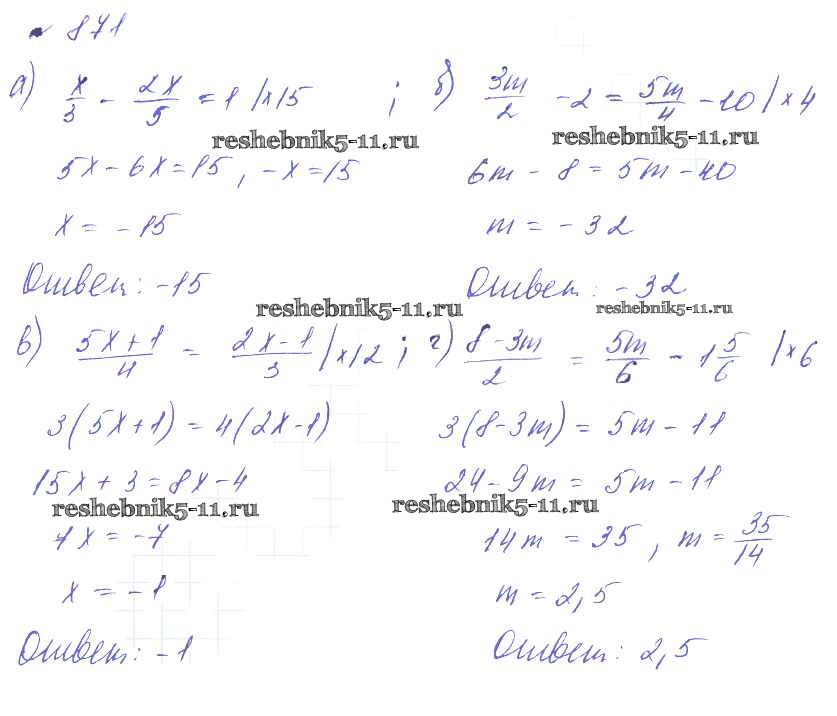 № 871
а) x/3 - 2x/5 = 1 |×15 ;
reshebnik5-11.ru
5x - 6x = 15, -x = 15
x = -15
Ответ: -15
б) 3m/2 - 2 = 5m/4 - 10 |×4
reshebnik5-11.ru
6m - 8 = 5m - 40
m = -32
Ответ: -32
reshebnik5-11.ru
reshebnik5-11.ru
в) 5x+1/4 = 2x-1/3 |×12 ;
3(5x+1) = 4(2x-1)
15x + 3 = 8x - 4
reshebnik5-11.ru
7x = -7
x = -1
Ответ: -1
г) 8-3m/2 = 5m/6 - 1 5/6 |×6
3(8-3m) = 5m - 11
24 - 9m = 5m - 11
reshebnik5-11.ru
14m = 35, m = 35/14
m = 2,5
Ответ: 2,5